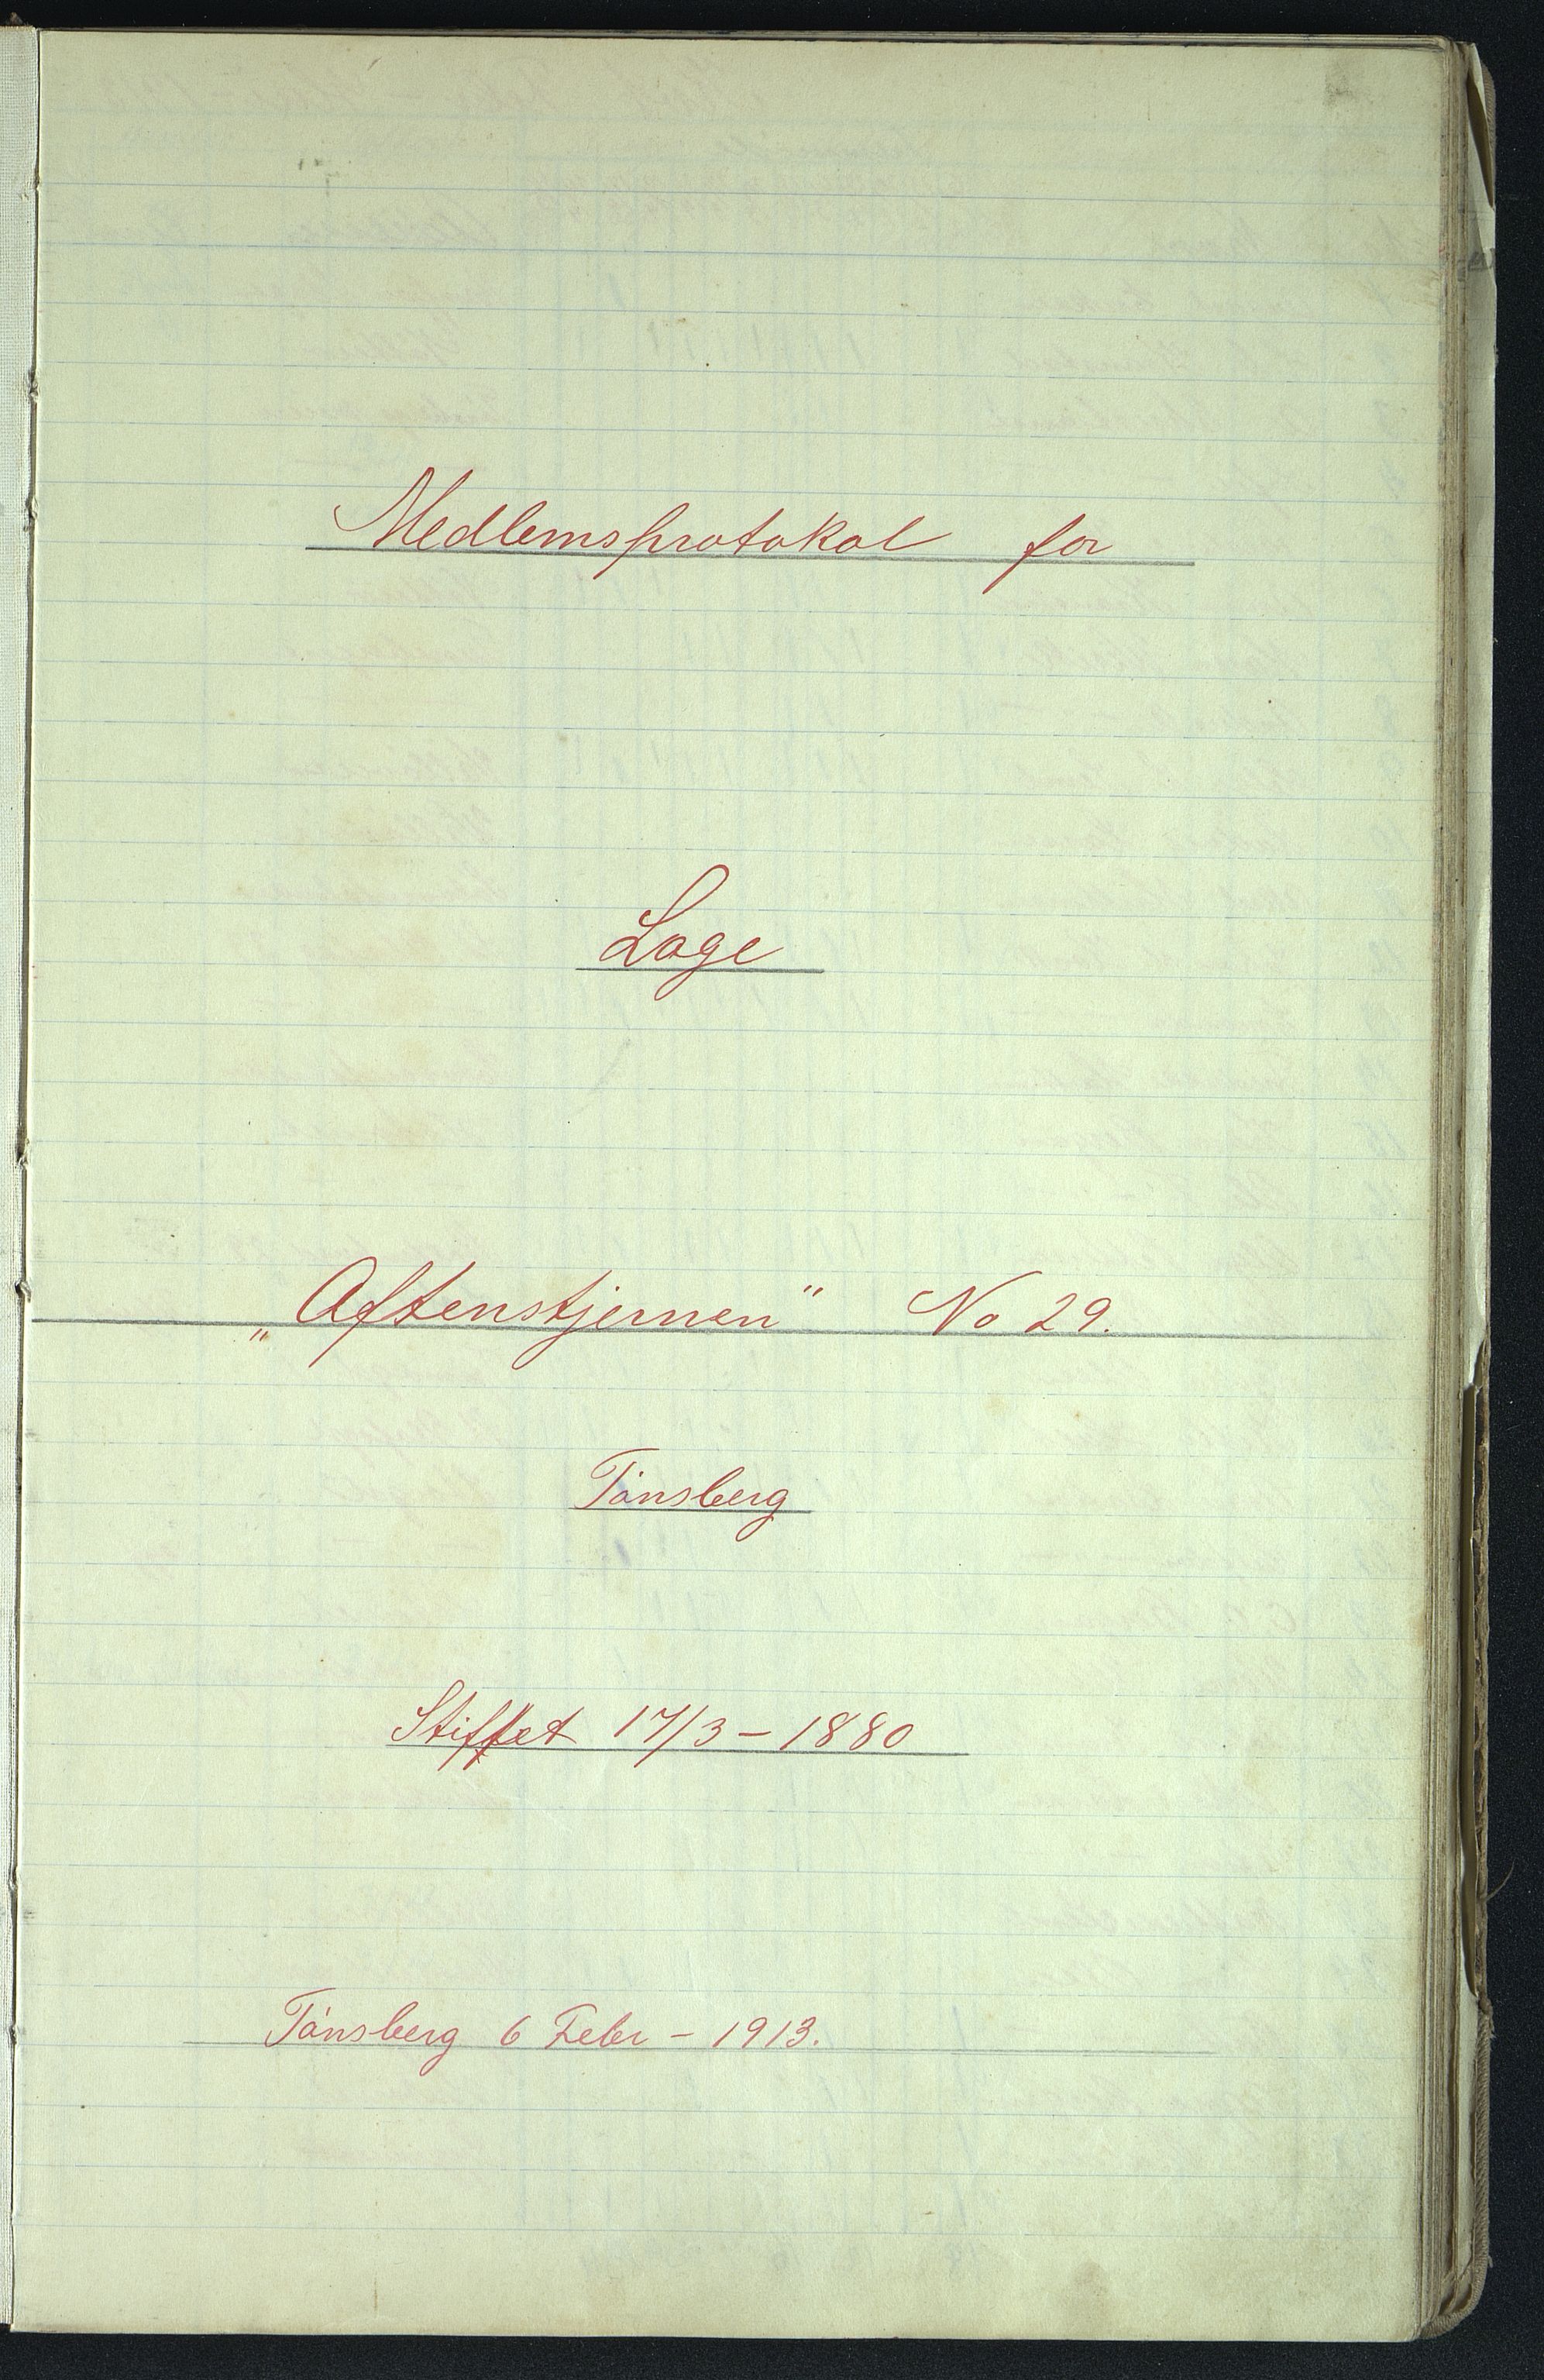 Medlemsprotokol for
Loge
„Aftenstjernen“ No 29.
Tønsberg
Stiftet 17/3 – 1880
Tønsberg 6 Febr – 1913.